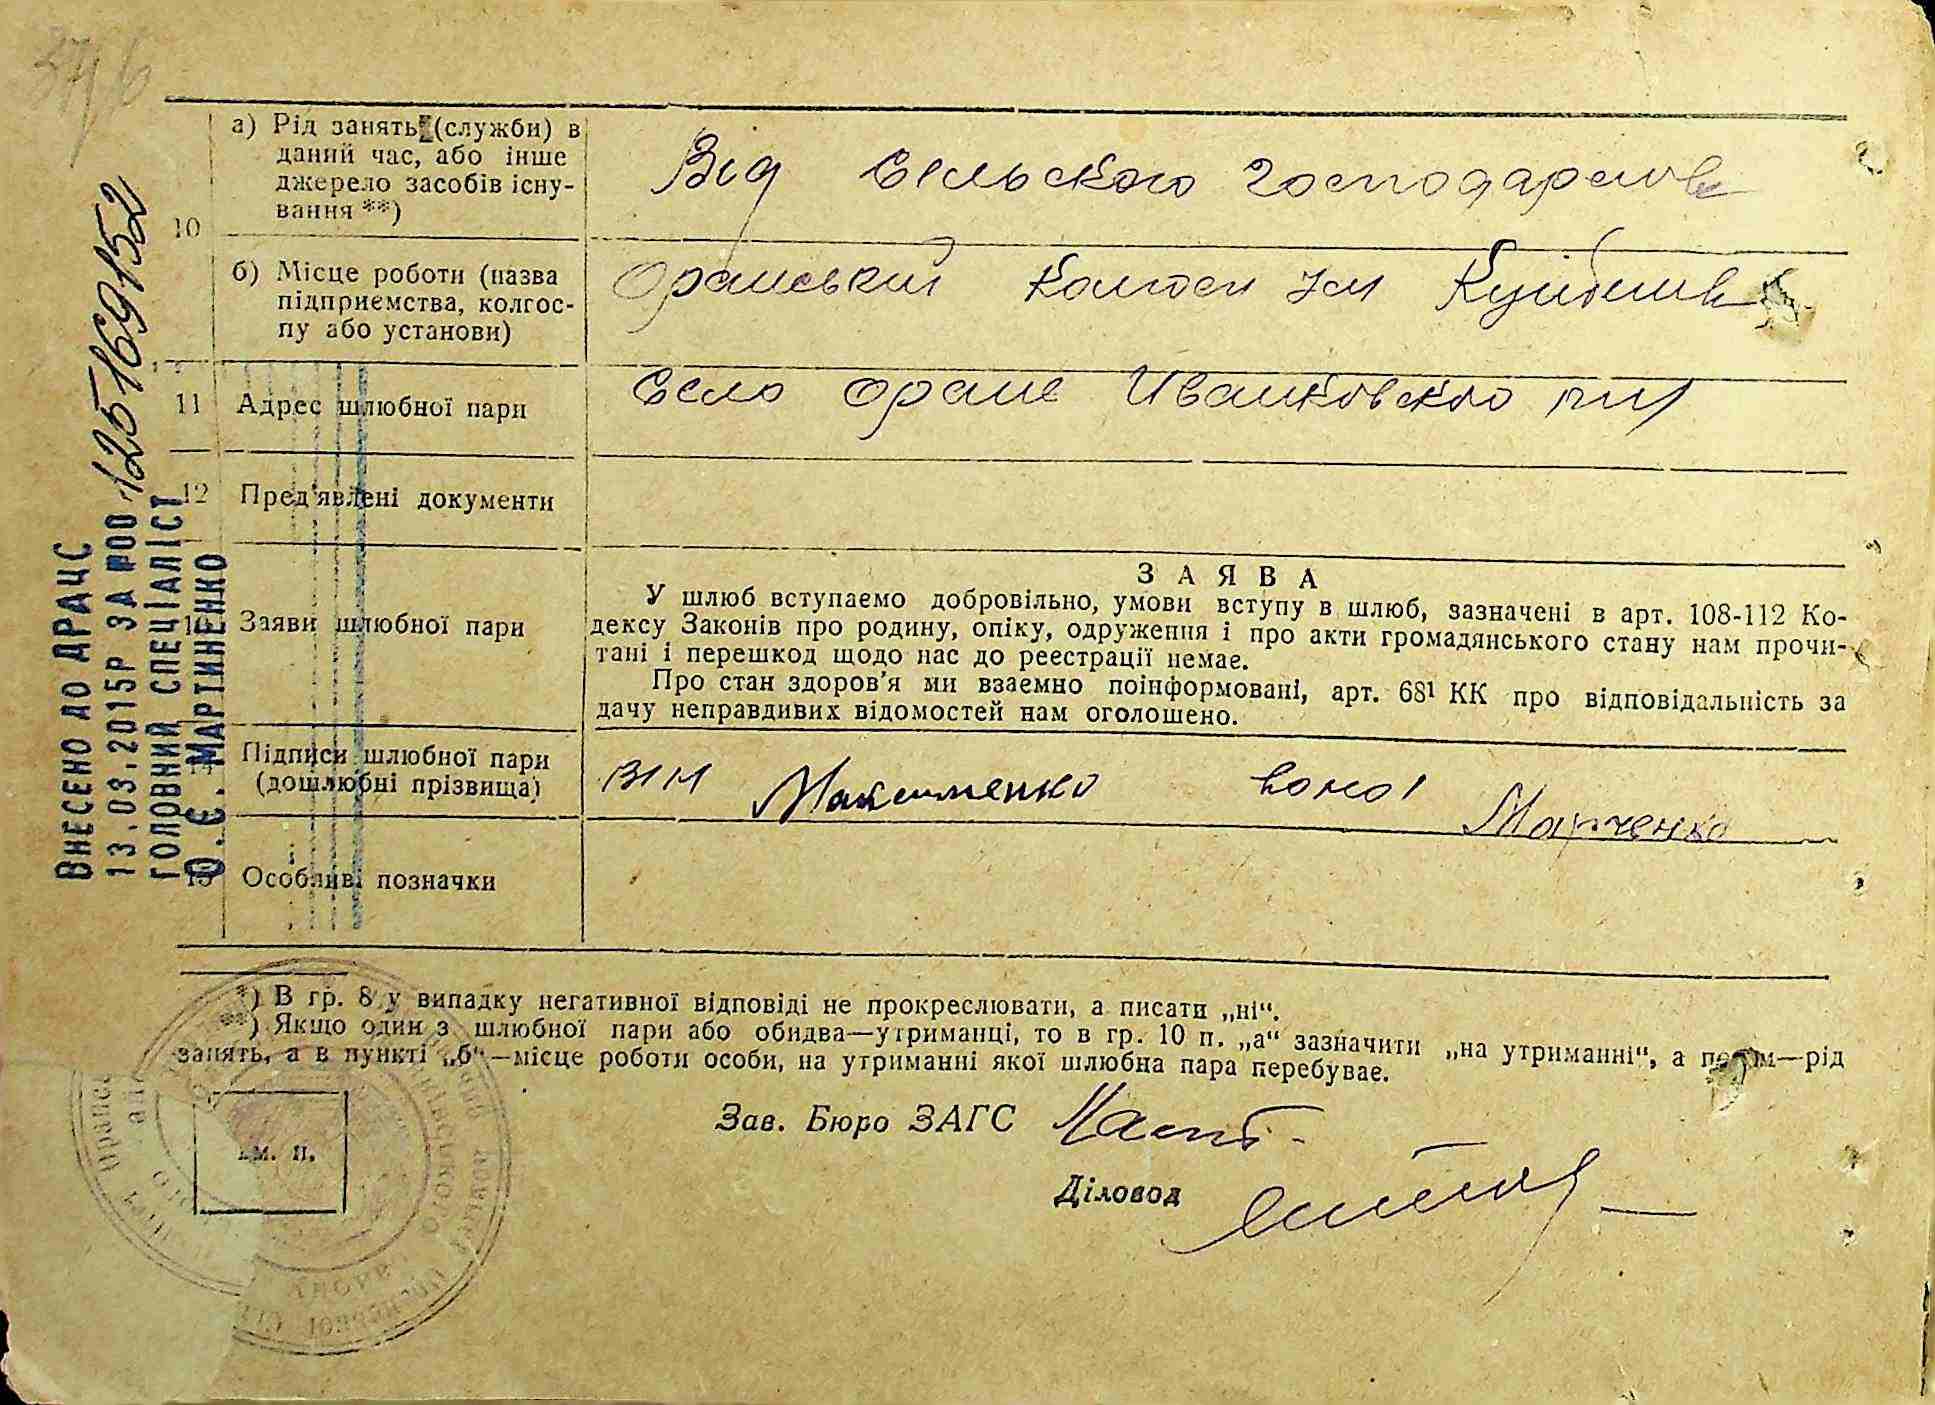 а) Рід занять (служби) в
даний час, або інше
джерело засобів існу-
вання **)
10
Від сельского господарства
б) Місце роботи (назва
підприємства, колгос-
пу або установи)
Оранський Колгосп Ім Куйбишева
11 Адрес шлюбної пари
Село Оране Иванковского
12 Пред'явлені документи
Заяви шлюбної пари
ЗАЯВА
У шлюб вступаємо добровільно, умови вступу в шлюб, зазначені в арт. 108-112 Ко-
дексу Законів про родину, опіку, одруження і про акти громадянського стану нам прочи-
тані і перешкод щодо нас до реєстрації немає.
Про стан здоров'я ми взаємно поінформовані, арт. 68¹ КК про відповідальність за
дачу неправдивих відомостей нам оголошено.
Підписи шлюбної пари
(дошлюбні прізвища)
він Максименко вона Марченко
15 Особливі позначки
*) В гр. 8 у випадку негативної відповіді не прокреслювати, а писати „ні“.
**) Якщо один з шлюбної пари або обидва—утриманці, то в гр. 10 п. „а“ зазначити „на утриманні“, а потім—рід
занять, а в пункті „б“—місце роботи особи, на утриманні якої шлюбна пара перебуває.
Зав. Бюро ЗАГС
Діловод
м. п.
Внесено до ДРАЦС
13.03.2015р за №00125169152
головний спеціаліст
О.Є. Мартиненко